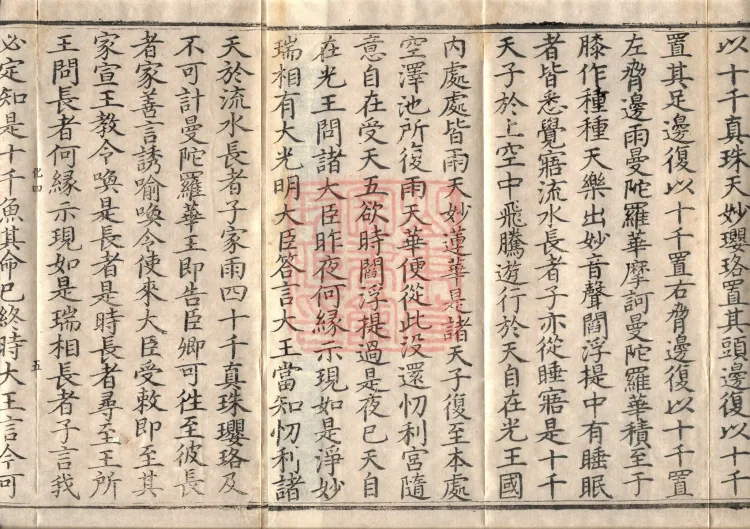 以十千真珠天妙瓔珞置其頭邊復以十千
置其足邊復以十千置右脅邊復以十千置
左脅邊雨曼陀羅華摩訶曼陀羅華積至于
膝作種種天樂出妙音聲閻浮提中有睡眠
者皆悉覺寤流水長者子亦從睡寤是十千
天子於上空中飛騰遊行於天自在光王國
內處處皆雨天妙蓮華是諸天子復至本處
空澤池所復雨天華便從此没還忉利宮隨
意自在受天五欲時閻浮提過是夜已天自
在光王問諸大臣昨夜何緣示現如是淨妙
瑞相有大光明大臣答言大王當知忉利諸
天於流水長者子家雨四十千真珠瓔珞及
不可計曼陀羅華王即告臣卿可往至彼長
者家善言誘喻喚令使來大臣受敕即至其
家宣王教令喚是長者是時長者尋至王所
王問長者何緣示現如是瑞相長者子言我
化四 五
必定知是十千魚其命已終時大王言今可